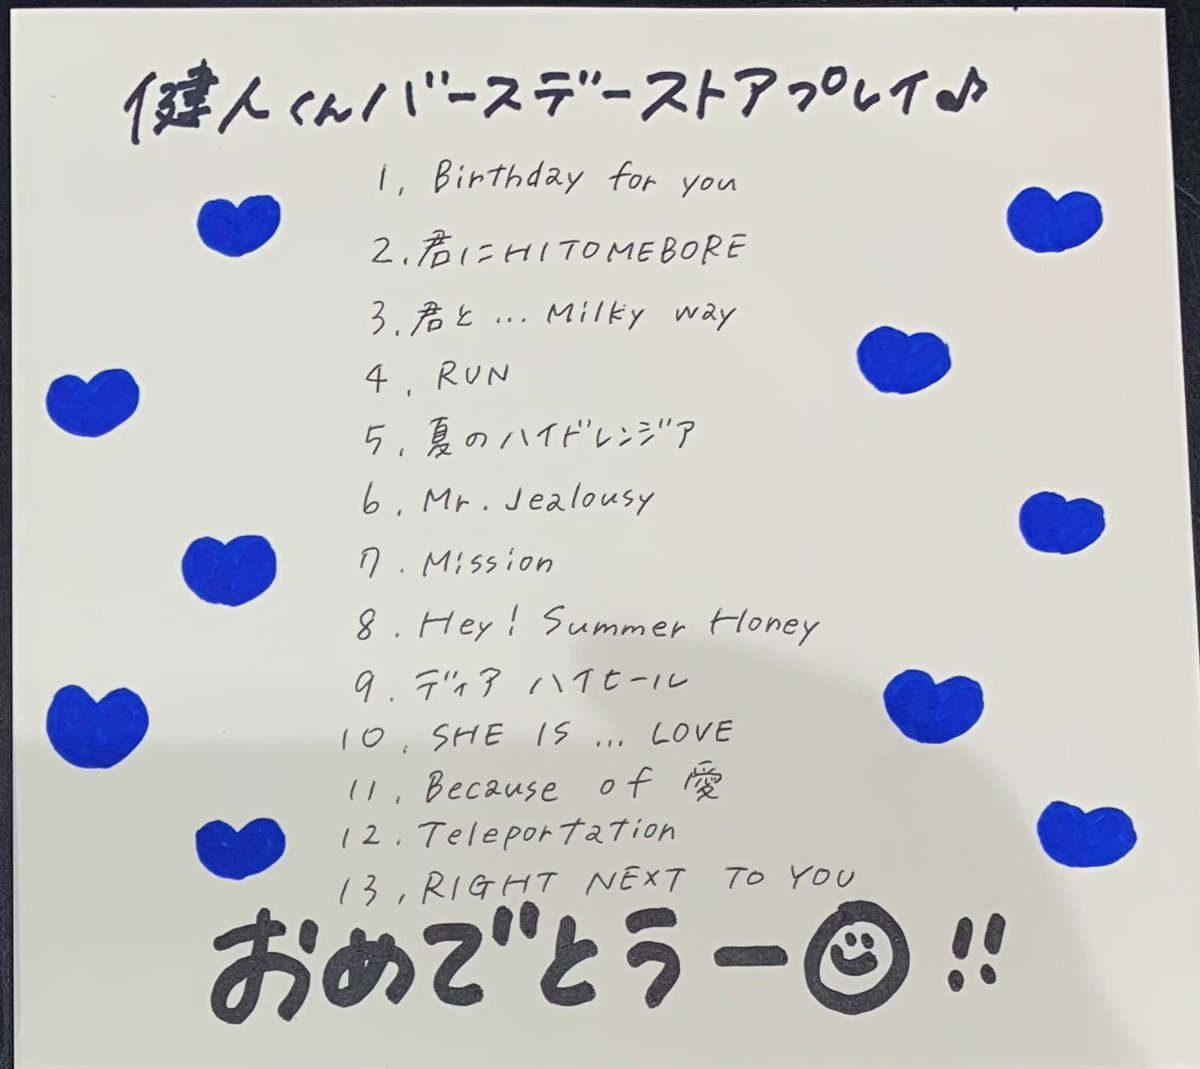 健人くんバースデーストアプレイ♪
1. Birthday for you
2. 君にHITOMEBORE
3. 君と…Milky way
4. RUN
5. 夏のハイドレンジア
6. Mr. Jealousy
7. Mission
8. Hey! Summer Honey
9. ディア ハイヒール
10. SHE IS … LOVE
11. Because of 愛
12. Teleportation
13. RIGHT NEXT TO YOU
おめでとうー☺!!